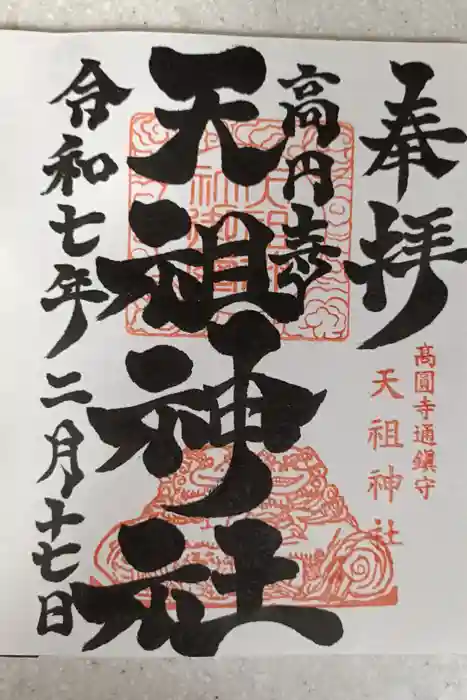 奉拝
高円寺
天祖神社
令和七年二月十七日
高圓寺通鎮守
天祖神社